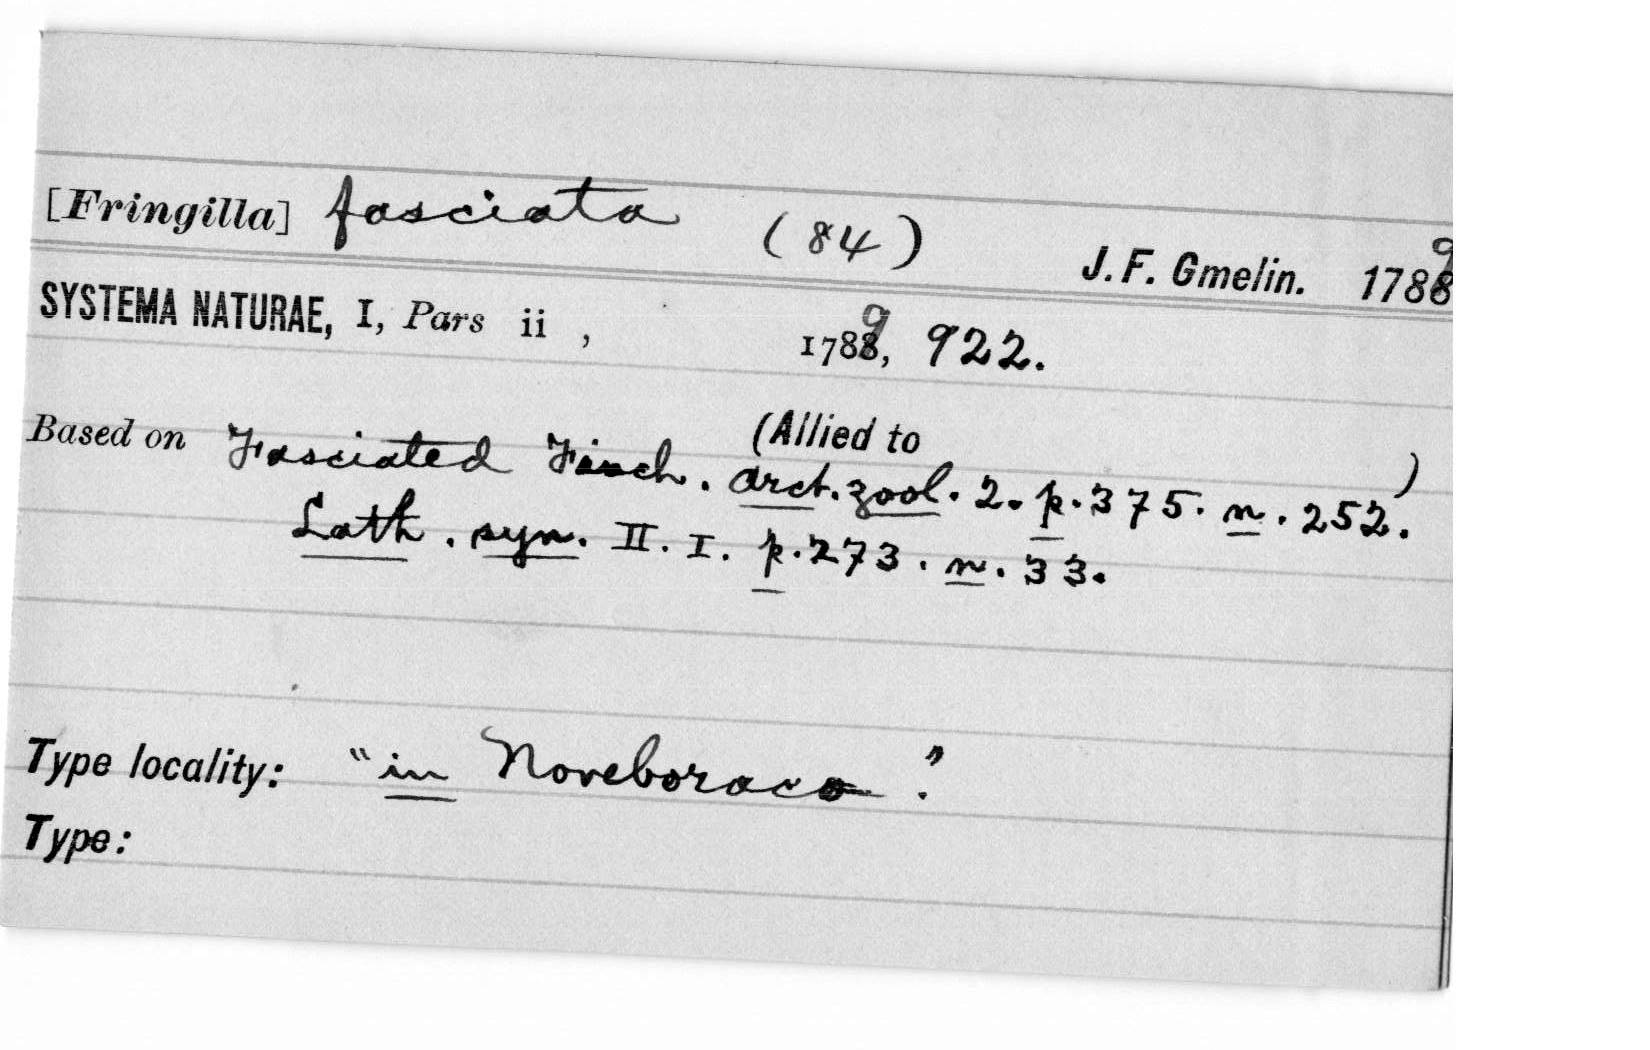 [Fringilla] fasciata (84) J. F. Gmelin. 1789
SYSTEMA NATURAE, I, Pars ii , 1789, 922.
(Allied to )
Based on Fasciated Finch. arct. zool. 2. p. 375. n. 252.
Lath. syn. II. I. p. 273. n. 33.
Type locality: "in Noveboraco."
Type: